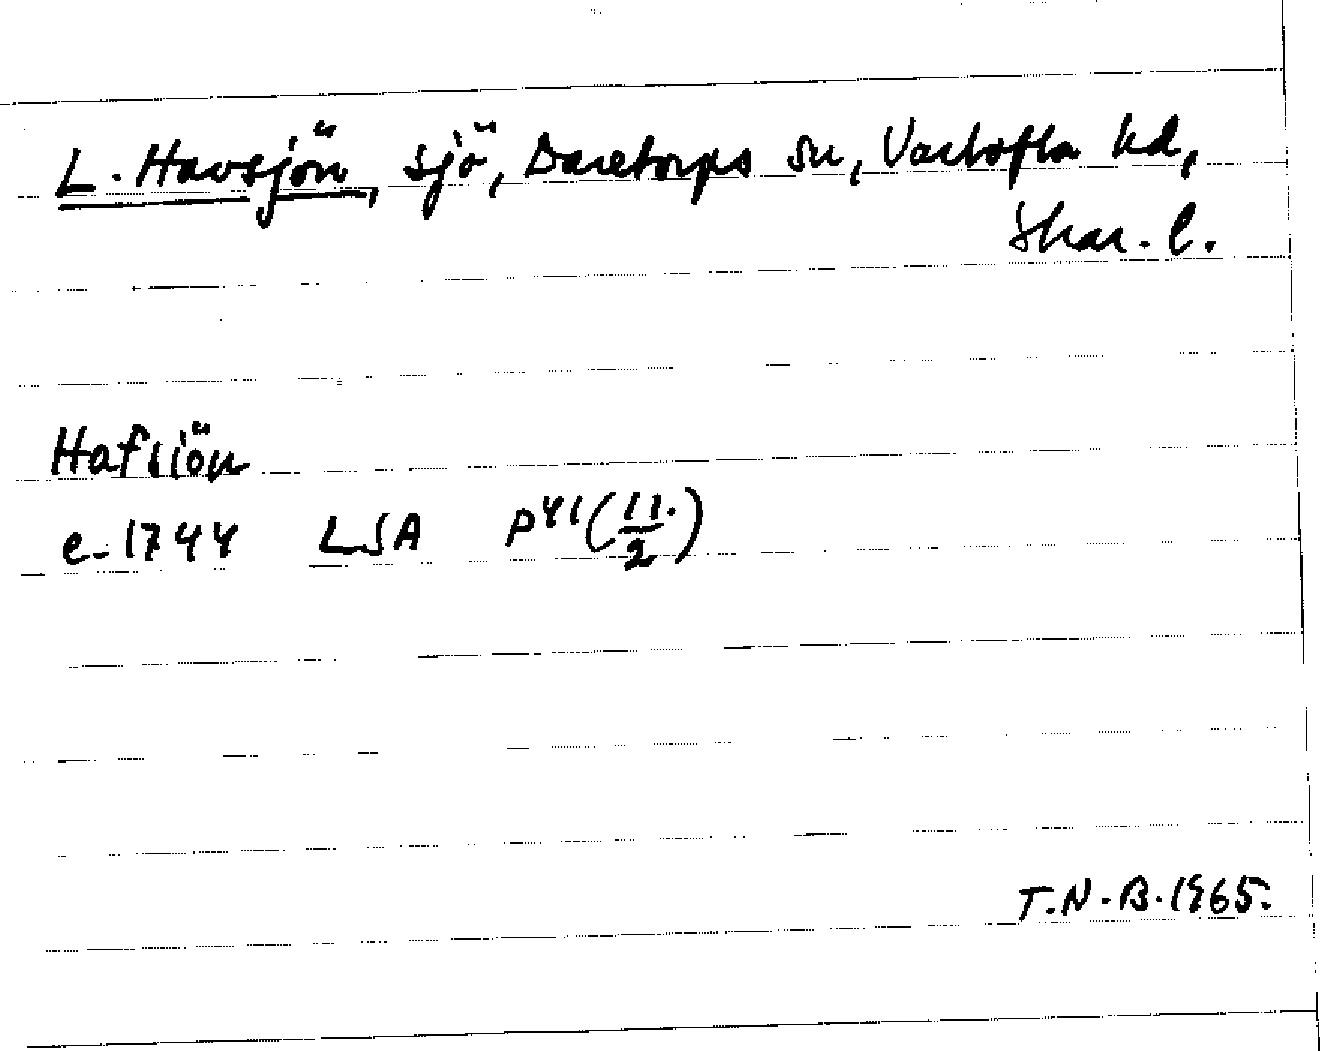 L. Havsjön, sjö, Daretorps sn, Vartofta hd,
Skar. l.
Hafsiön
e. 1744 LSA P41(11./2)
T.N.B. 1965.